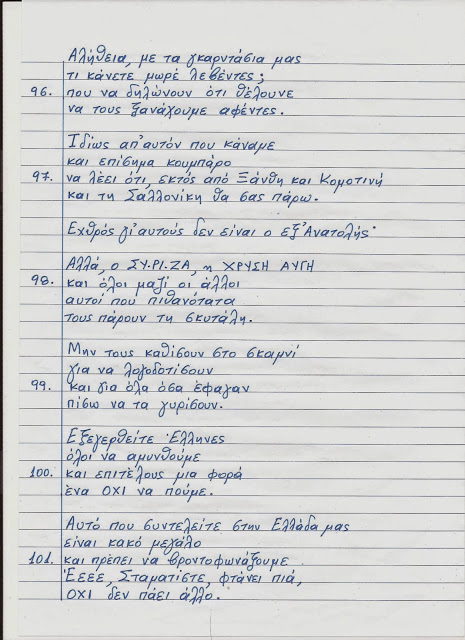 Αλήθεια, με τα γκαρντάσια μας
τι κάνετε μωρέ λεβέντες;
96. που να δηλώνουν ότι θέλουνε
να τους ξανάχουμε αφέντες.
Ιδίως απ'αυτόν που κάναμε
και επίσημα κουμπάρο
97. να λέει ότι, εκτός από Ξάνθη και Κομοτινή
και τη Σαλλονίκη θα σας πάρω.
Εχθρός γι'αυτούς δεν είναι ο εξ'Ανατολής·
Αλλά, ο ΣΥ.ΡΙ.ΖΑ, η ΧΡΥΣΗ ΑΥΓΗ
98. και όλοι μαζί οι άλλοι
αυτοί που πιθανότατα
τους πάρουν τη σκυτάλη.
Μην τους καθίσουν στο σκαμνί
για να λογοδοτίσουν
99. και για όλα όσα έφαγαν
πίσω να τα γυρίσουν.
Εξεγερθείτε Έλληνες
όλοι να αμυνθούμε
100. και επιτέλους μια φορά
ένα ΟΧΙ να πούμε.
Αυτό που συντελείτε στην Ελλάδα μας
είναι κακό μεγάλο
101. και πρέπει να βροντοφωνάξουμε
Έεεε, Σταματίστε, φτάνει πιά,
ΟΧΙ δεν πάει άλλο.